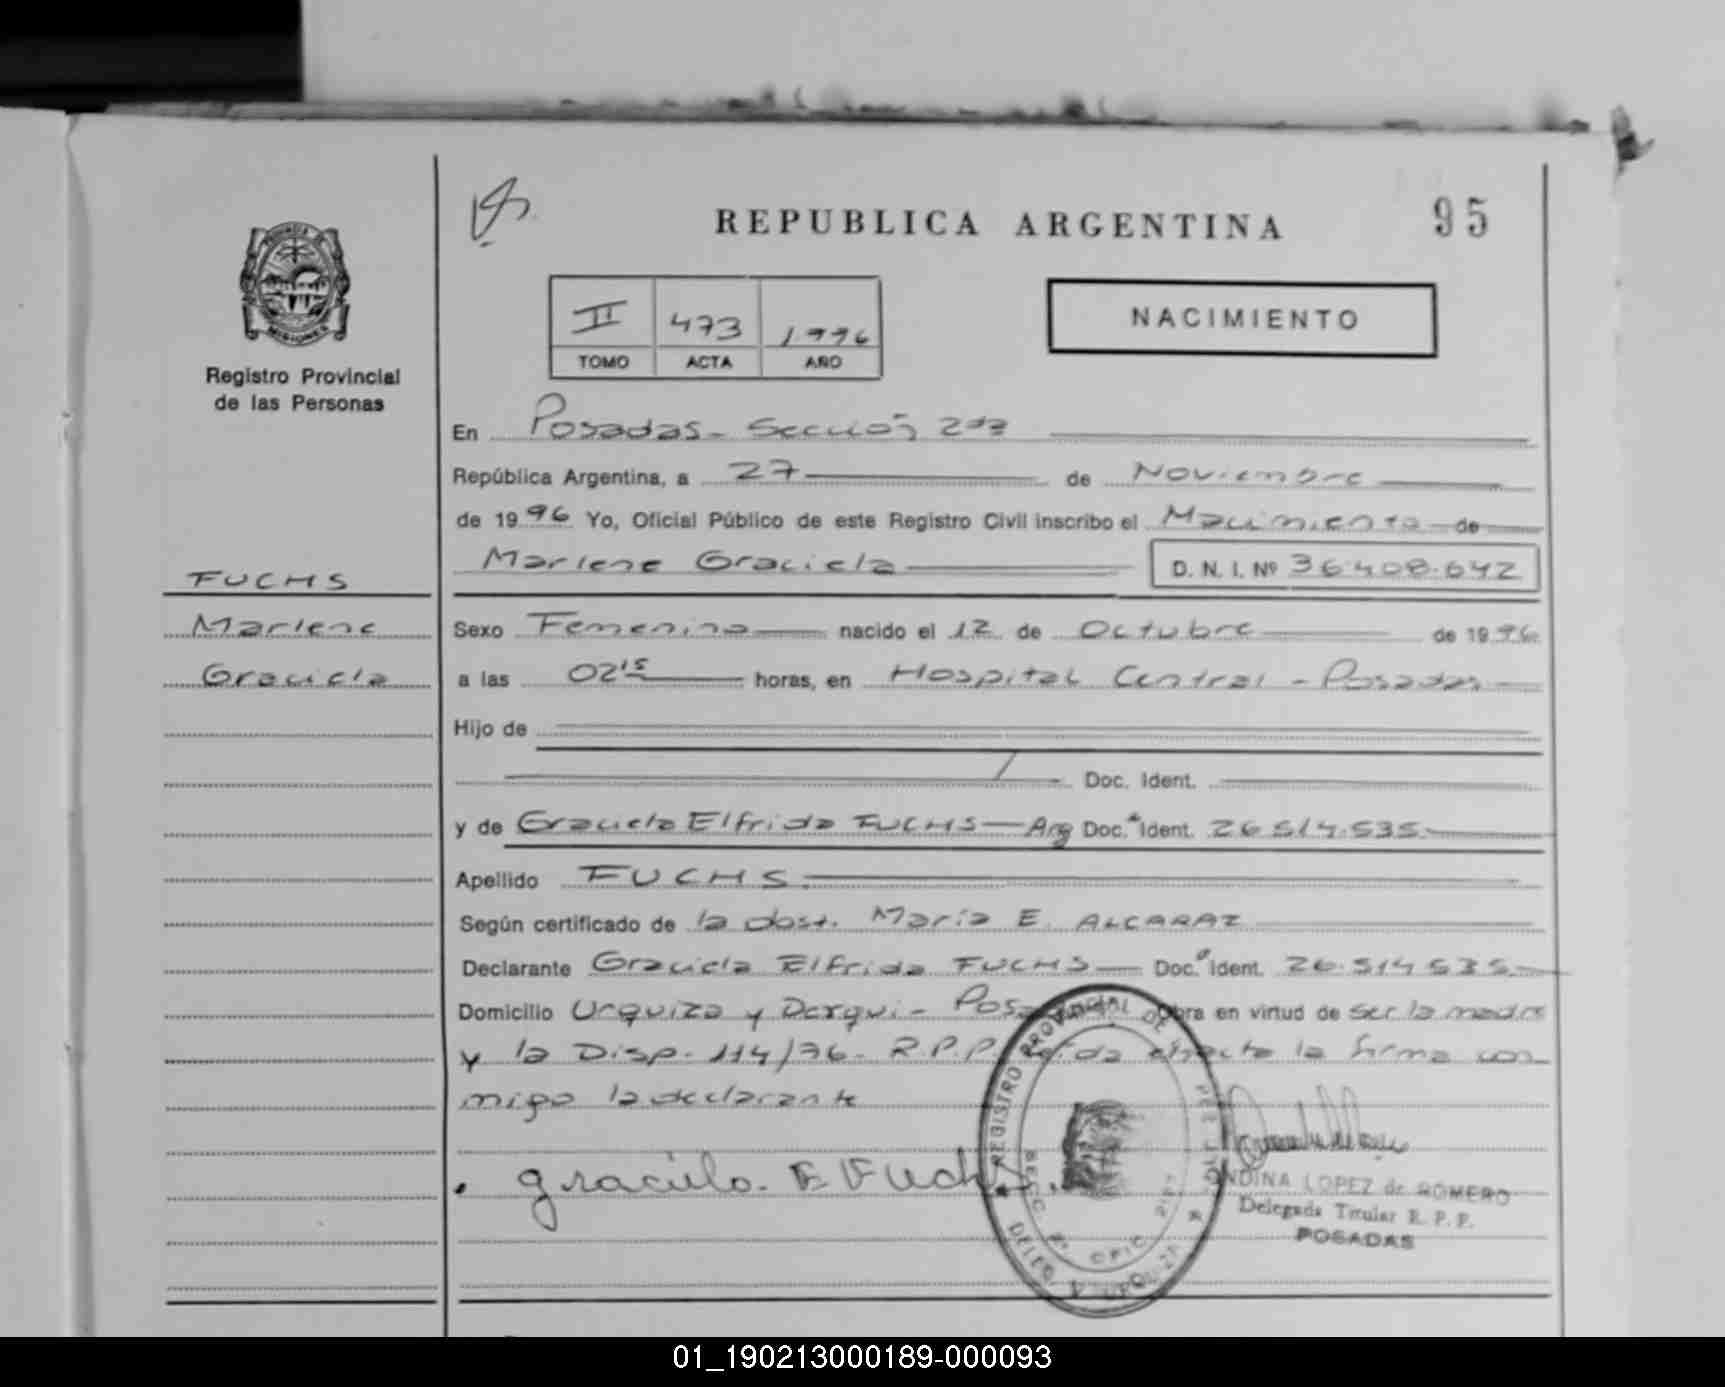 95
REPUBLICA ARGENTINA
NACIMIENTO
II 473 1996
TOMO ACTA AÑO
MISIONES
Registro Provincial
de las Personas
FUCHS
Marlene
Graciela
En Posadas - Sección 2da
República Argentina, a 27 de Noviembre
de 1996 Yo, Oficial Público de este Registro Civil inscribo el Nacimiento de
Marlene Graciela D. N. I. Nº 36.408.642
Sexo Femenino nacido el 12 de Octubre de 1996
a las 02 15 horas, en Hospital Central - Posadas
Hijo de
Doc. Ident.
y de Graciela Elfrida FUCHS Arg Doc. Ident. 26.514.535
Apellido FUCHS
Según certificado de la obst. María E. ALCARAZ
Declarante Graciela Elfrida FUCHS Doc. Ident. 26.514.535
Domicilio Urquiza y Derqui - Obra en virtud de ser la madre
y la Disp. 114/76. R.P.P. la firma con
migo la declarante
Graciela E Fuchs
REGISTRO PROVINCIAL DE
LOPEZ de ROMERO
Delegada Titular R. P. P.
POSADAS
01_190213000189-000093